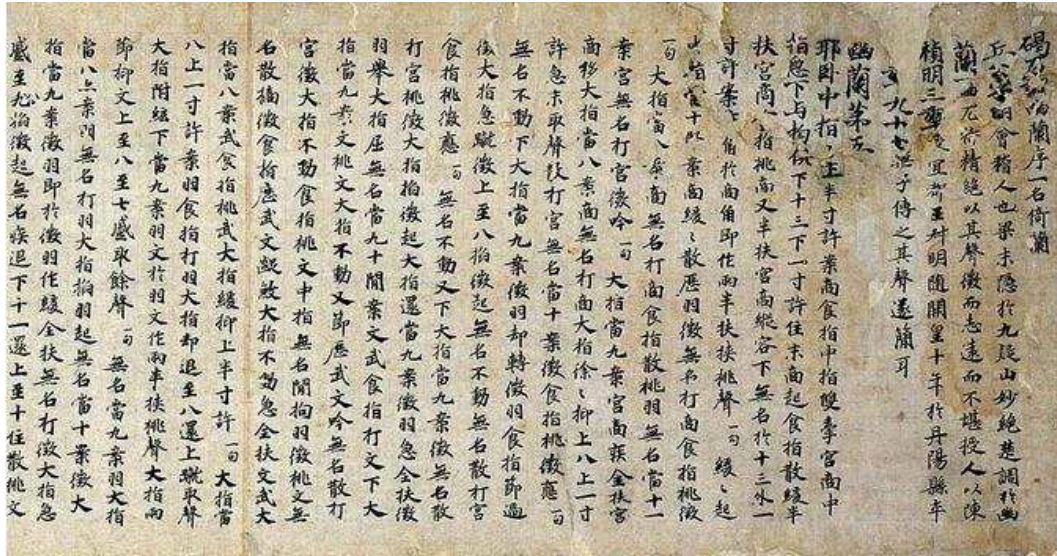 碣石調幽蘭序一名倚蘭
丘公字明會稽人也梁末隱於九疑山妙絕楚調於幽
蘭一曲尤特精絕以其聲微而志遠而不堪授人以陳
禎明三年授宜都王叔明隨開皇十年於丹陽縣卒
年九十七無子傳之其聲遂簡耳
幽蘭第五
耶臥中指十上半寸許案商食指中指雙牽宮商中
指急下与拘俱下十三下一寸許住末商起食指散緩半
扶宮商食指挑商又半扶宮商縱容下無名於十三外一
寸許案商角於商角即作兩半扶挾挑聲一句 緩々起
無名當十一案商緩々散歷羽徵無名打商食指挑徵
一句 大指當八案商無名打商食指散挑羽無名當十一
案宮無名打宮徵吟一句 大指當九案宮商疾全扶宮
商移大指當八案商無名打商大指徐々抑上八上一寸
許急末取聲散打宮無名當十案徵食指挑徵應一句
無名不動下大指當九案徵羽却轉徵羽食指節過
徵大指急蹴徵上至八指徵起無名不動無名散打宮
食指挑徵應一句 無名不動又下大指當九案徵無名散
打宮挑徵大指指徵起大指還當九案徵羽急全扶徵
羽舉大指屈無名當九十間案文武食指打文下大
指當九案文挑文大指不動又節歷武文吟無名散打
宮徵大指不動食指挑文中指無名間拘羽徵挑文無
名散摘徵食指應武文緩散大指不動急全扶文武大
指當八案武食指挑武大指緩抑上半寸許一句 大指當
八上一寸許案羽食指打羽大指却退至八還上蹴取聲
大指附絃下當九案羽文於羽文作兩半扶挑聲大指兩
節抑文上至八至七蹙取餘聲一句 無名當九案羽大指
當八案羽無名打羽大指指羽起無名當十案徵大
指當九案徵羽即於徵羽作緩全扶無名打徵大指急
蹙至九指徵起無名疾退下十一還上至十住散挑文